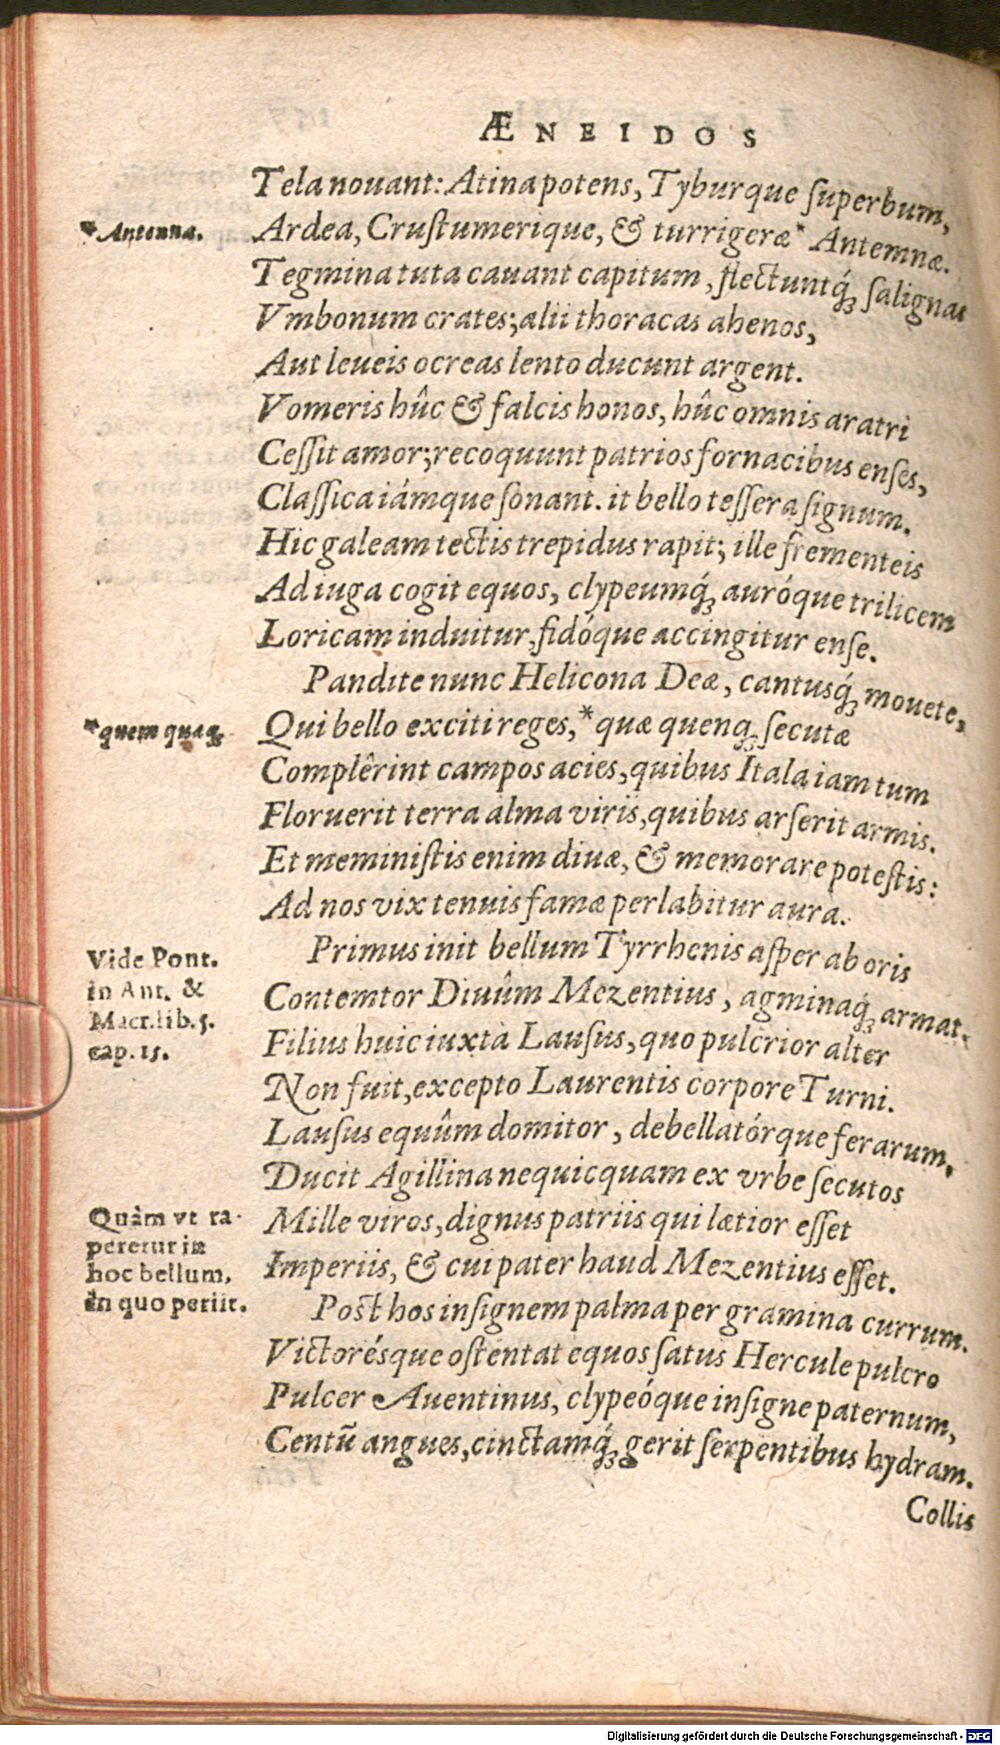 ÆNEIDOS
Tela nouant: Atina potens, Tyburque ſuperbum,
* Antenna.
Ardea, Cruſtumerique, & turrigeræ* Antemnæ.
Tegmina tuta cauant capitum, flectuntq́; ſalignas
Vmbonum crates; alii thoracas ahenos,
Aut leueis ocreas lento ducunt argent.
Vomeris hûc & falcis honos, hûc omnis aratri
Ceſſit amor; recoquunt patrios fornacibus enſes,
Claſſica iámque ſonant. it bello teſſera ſignum.
Hic galeam tectis trepidus rapit; ille frementeis
Ad iuga cogit equos, clypeumq́; auróque trilicem
Loricam induitur, fidóque accingitur enſe.
Pandite nunc Helicona Deæ, cantusq́; mouete,
* quem quæq;
Qui bello exciti reges, * quæ quenq; ſecutæ
Complêrint campos acies, quibus Itala iam tum
Floruerit terra alma viris, quibus arſerit armis.
Et meminiſtis enim diuæ, & memorare poteſtis:
Ad nos vix tenuis famæ perlabitur aura.
Primus init bellum Tyrrhenis aſper ab oris
Vide Pont.
in Ant. &
Macr. lib. 5.
cap. 15.
Contemtor Diuûm Mezentius, agminaq́; armat.
Filius huic iuxtà Lauſus, quo pulcrior alter
Non fuit, excepto Laurentis corpore Turni.
Lauſus equûm domitor, debellatórque ferarum,
Ducit Agillina nequicquam ex vrbe ſecutos
Quàm vt ra-
peretur in
hoc bellum,
in quo periit.
Mille viros, dignus patriis qui lætior eſſet
Imperiis, & cui pater haud Mezentius eſſet.
Poſt hos inſignem palma per gramina currum.
Victorésque oſtentat equos ſatus Hercule pulcro
Pulcer Auentinus, clypeóque inſigne paternum,
Centũ angues, cinctamq́; gerit ſerpentibus hydram.
Collis
Digitalisierung gefördert durch die Deutsche Forschungsgemeinschaft - DFG